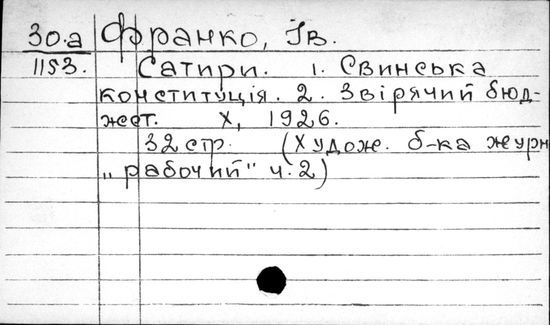 30.а Франко, Ів.
1153. Сатири. 1. Свинська
конституція. 2. Звірячий бюд-
жет. Х, 1926.
32 стр. (Худож. б-ка журн
„рабочий" ч. 2)